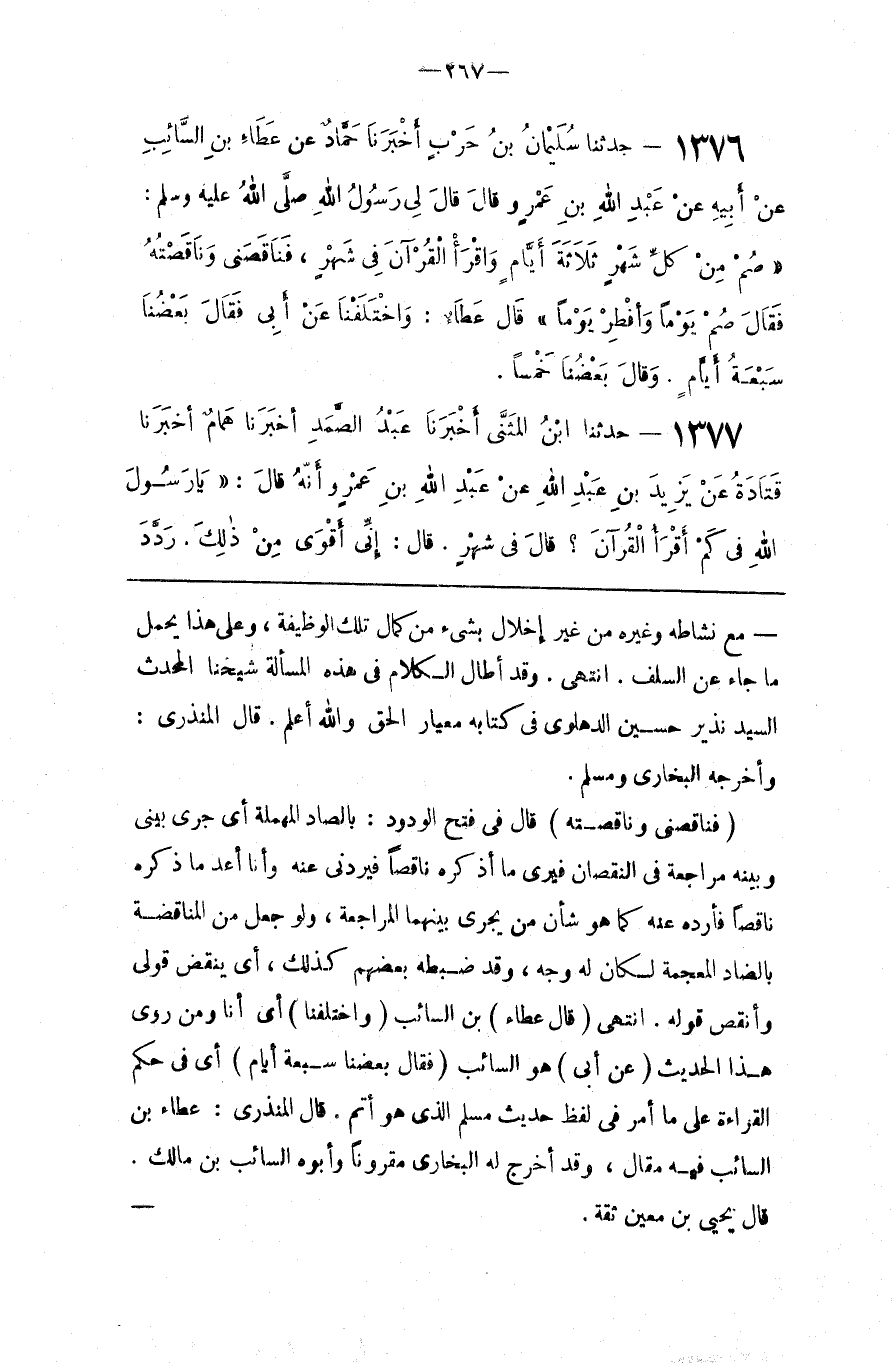 —٢٦٧—
١٣٧٦ — حدثنا سُلَيْمَانُ بنُ حَرْبٍ أَخْبَرَنَا حَمَّادٌ عن عَطَاءِ بنِ السَّائِبِ
عنْ أَبِيهِ عنْ عَبْدِ اللهِ بنِ عَمْرٍو قالَ قالَ لِى رَسُولُ اللهِ صلَّى اللهُ عليه وسلم :
« صُمْ مِنْ كلِّ شَهْرٍ ثَلَاثَةَ أَيَّامٍ وَاقْرَأْ الْقُرْآنَ فِى شَهْرٍ ، فَنَاقَصَنى وَنَاقَصْتُهُ
فَقَالَ صُمْ يَوْماً وَأَفْطِرْ يَوْماً » قَال عَطَاءٌ : وَاخْتَلَفْنَا عَنْ أَبِى فَقَالَ بَعْضُنَا
سَبْعَةُ أَيَّامٍ . وَقالَ بَعْضُنَا خَمْساً .
١٣٧٧ — حدثنا ابْنُ المثَنَّى أَخْبَرَنَا عَبْدُ الصَّمَدِ أخبَرَنا هَمامٌ أخبَرَنا
قَتَادَةُ عَنْ يَزِيدَ بنِ عبْدِ اللهِ عنْ عَبْدِ اللهِ بنِ عَمْرٍو أَنَّهُ قالَ : « يَارَسُولَ
اللهِ فى كَمْ أَقْرَأُ الْقُرآنَ ؟ قالَ فى شهْرٍ . قال : إِنِّى أَقْوَى مِنْ ذٰلِكَ . رَدَّدَ
— مع نشاطه وغيره من غير إخلال بشىء من كمال تلك الوظيفة ، وعلى هذا يحمل
ما جاء عن السلف . انتهى . وقد أطال الكلام فى هذه المسألة شيخنا المحدث
السيد نذير حسين الدهلوى فى كتابه معيار الحق والله أعلم . قال المنذرى :
وأخرجه البخارى ومسلم .
( فناقصنى وناقصته ) قال فى فتح الودود : بالصاد المهملة أى جرى بينى
وبينه مراجعة فى النقصان فيرى ما أذكره ناقصاً فيردنى عنه وأنا أعد ما ذكره
ناقصاً فأرده عنه كما هو شأن من يجرى بينهما المراجعة ، ولو جعل من المناقضة
بالضاد المعجمة لكان له وجه ، وقد ضبطه بعضهم كذلك ، أى ينقض قولى
وأنقص قوله . انتهى ( قال عطاء ) بن السائب ( واختلفنا ) أى أنا ومن روى
هذا الحديث ( عن أبى ) هو السائب ( فقال بعضنا سبعة أيام ) أى فى حكم
القراءة على ما أمر فى لفظ حديث مسلم الذى هو أتم . قال المنذرى : عطاء بن
السائب فيه مقال ، وقد أخرج له البخارى مقروناً وأبوه السائب بن مالك .
قال يحيى بن معين ثقة . —